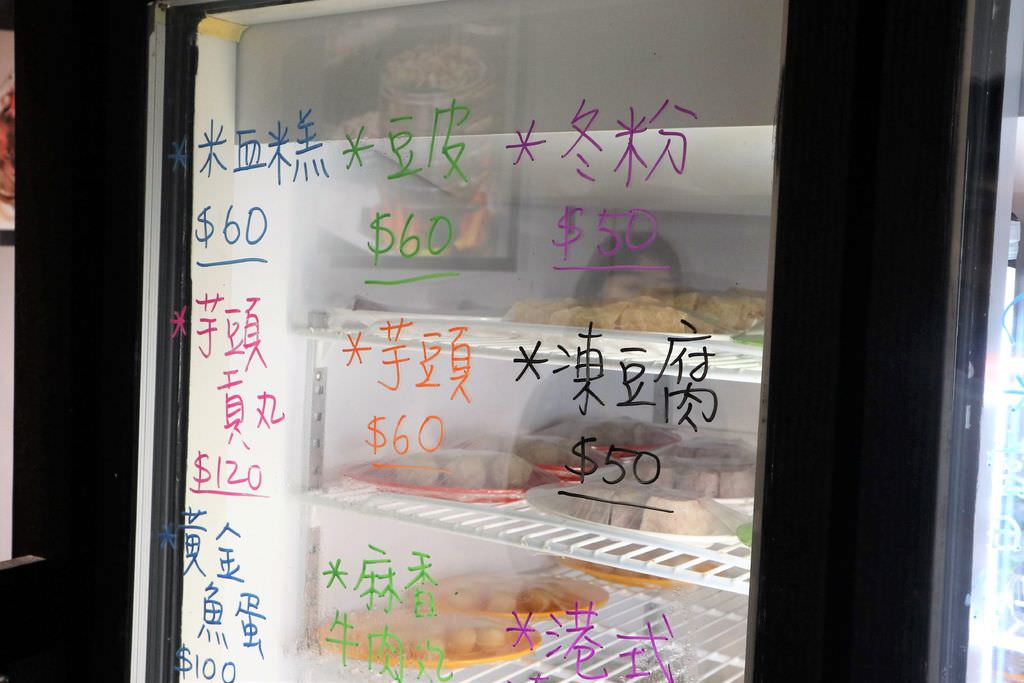 *米血糕
$60
*豆皮
$60
*冬粉
$50
*芋頭
貢丸
$120
*芋頭
$60
*凍豆腐
$50
*黃金
魚蛋
$100
*麻香
牛肉
*港式